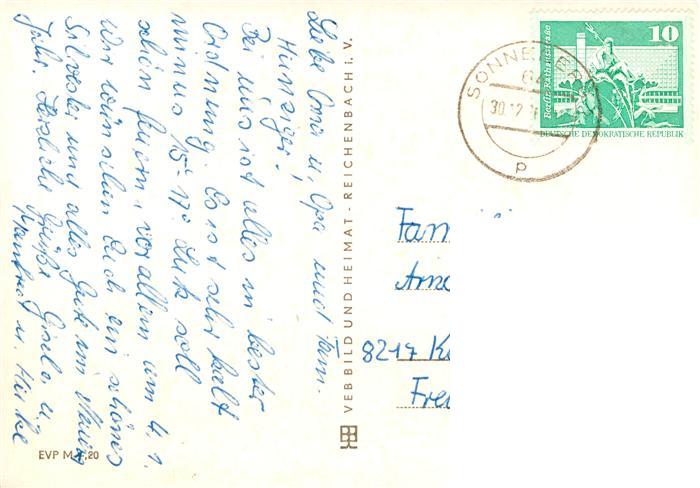 Liebe Oma u. Opa und Fam.
Hunziger!
Bei uns ist alles in bester
Ordnung. Es ist sehr kalt
minus 15-17° Lutz soll
schön feiern, vor allem am 4.1.
Wir wünschen Euch ein schönes
Silvester und alles Gute im Neuen
Jahr. Herzliche Grüße Gisela u.
Manfred u. Heike
EVP M 0,20
VEB BILD UND HEIMAT · REICHENBACH i. V.
SONNEBERG
64
30.12
p
Berlin, Rathausstraße
10
DEUTSCHE DEMOKRATISCHE REPUBLIK
Fam
8217